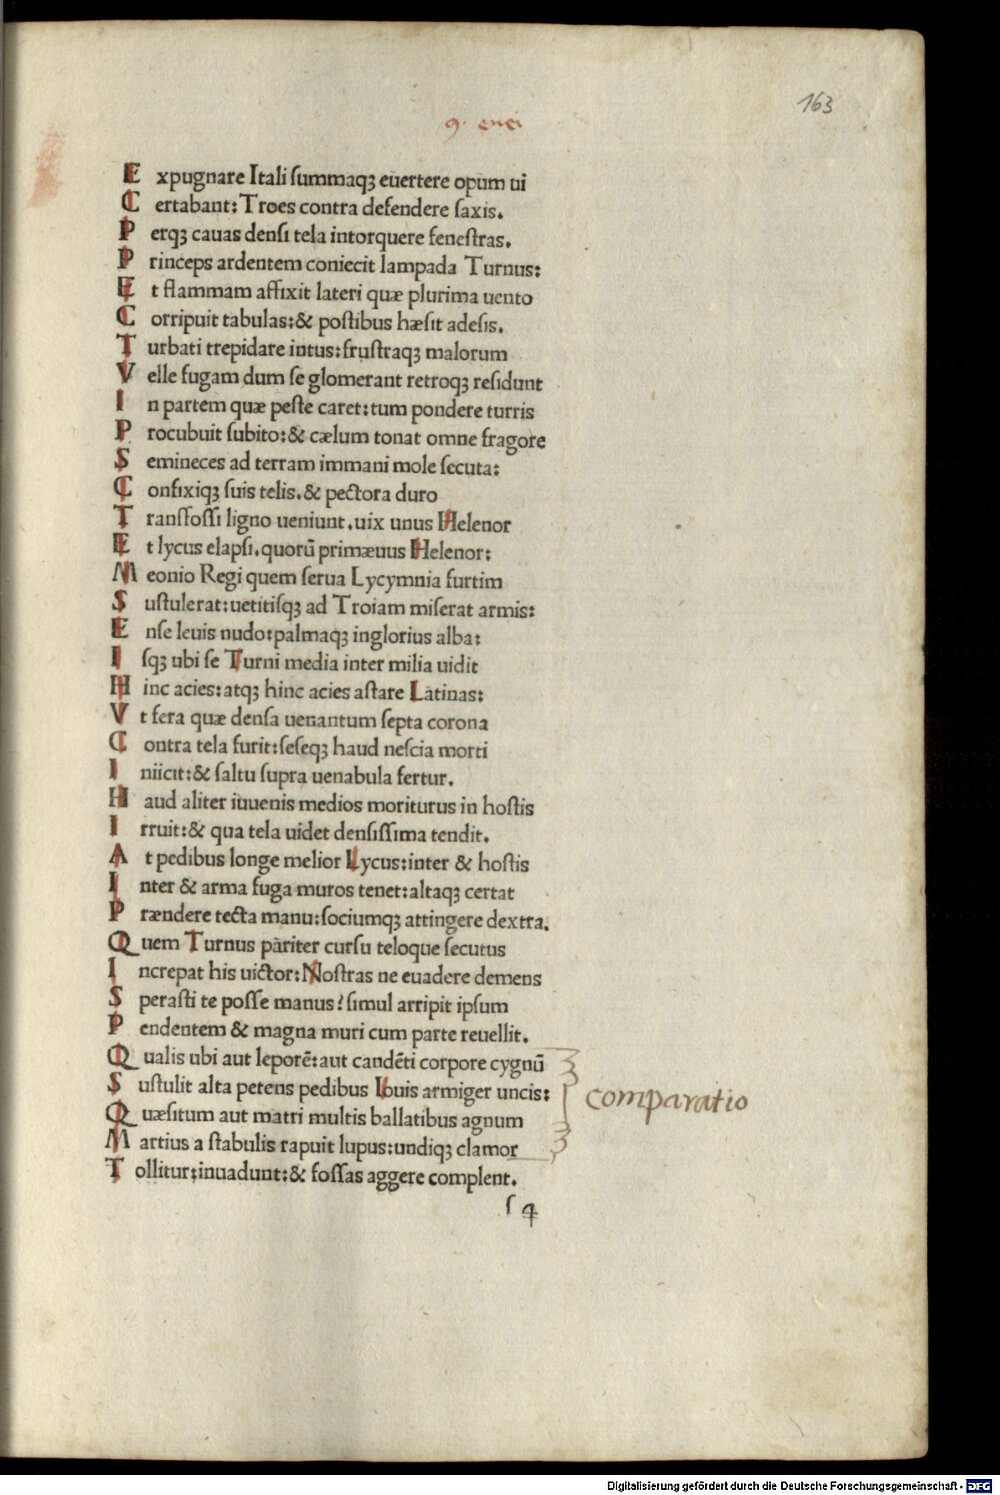 163
9. enei
Expugnare Itali ſummaqꝫ euertere opum ui
Certabant: Troes contra defendere ſaxis.
Perqꝫ cauas denſi tela intorquere feneſtras.
Princeps ardentem coniecit lampada Turnus:
Et flammam affixit lateri quæ plurima uento
Corripuit tabulas: & poſtibus hæſit adeſis.
Turbati trepidare intus: fruſtraqꝫ malorum
Velle fugam dum ſe glomerant retroqꝫ reſidunt
In partem quæ peſte caret: tum pondere turris
Procubuit ſubito: & cælum tonat omne fragore
Semineces ad terram immani mole ſecuta:
Confixiqꝫ ſuis telis. & pectora duro
Tranſfoſſi ligno ueniunt. uix unus Helenor
Et lycus elapſi. quorū primæuus Helenor:
Meonio Regi quem ſerua Lycymnia furtim
Suſtulerat: uetitiſqꝫ ad Troiam miſerat armis:
Enſe leuis nudo: palmaqꝫ inglorius alba:
Iſqꝫ ubi ſe Turni media inter milia uidit
Hinc acies: atqꝫ hinc acies aſtare Latinas:
Vt fera quæ denſa uenantum ſepta corona
Contra tela furit: ſeſeqꝫ haud neſcia morti
Iniicit: & ſaltu ſupra uenabula fertur.
Haud aliter iuuenis medios moriturus in hoſtis
Irruit: & qua tela uidet denſiſſima tendit.
At pedibus longe melior Lycus: inter & hoſtis
Inter & arma fuga muros tenet: altaqꝫ certat
Prændere tecta manu: ſociumqꝫ attingere dextra.
Quem Turnus pariter curſu teloque ſecutus
Increpat his uictor: Noſtras ne euadere demens
Speraſti te poſſe manus? ſimul arripit ipſum
Pendentem & magna muri cum parte reuellit.
Qualis ubi aut leporē: aut candēti corpore cygnū
Suſtulit alta petens pedibus Iouis armiger uncis:
comparatio
Quæſitum aut matri multis ballatibus agnum
Martius a ſtabulis rapuit lupus: undiqꝫ clamor
Tollitur: inuadunt: & foſſas aggere complent.
ſ 4
Digitalisierung gefördert durch die Deutsche Forschungsgemeinschaft - DFG